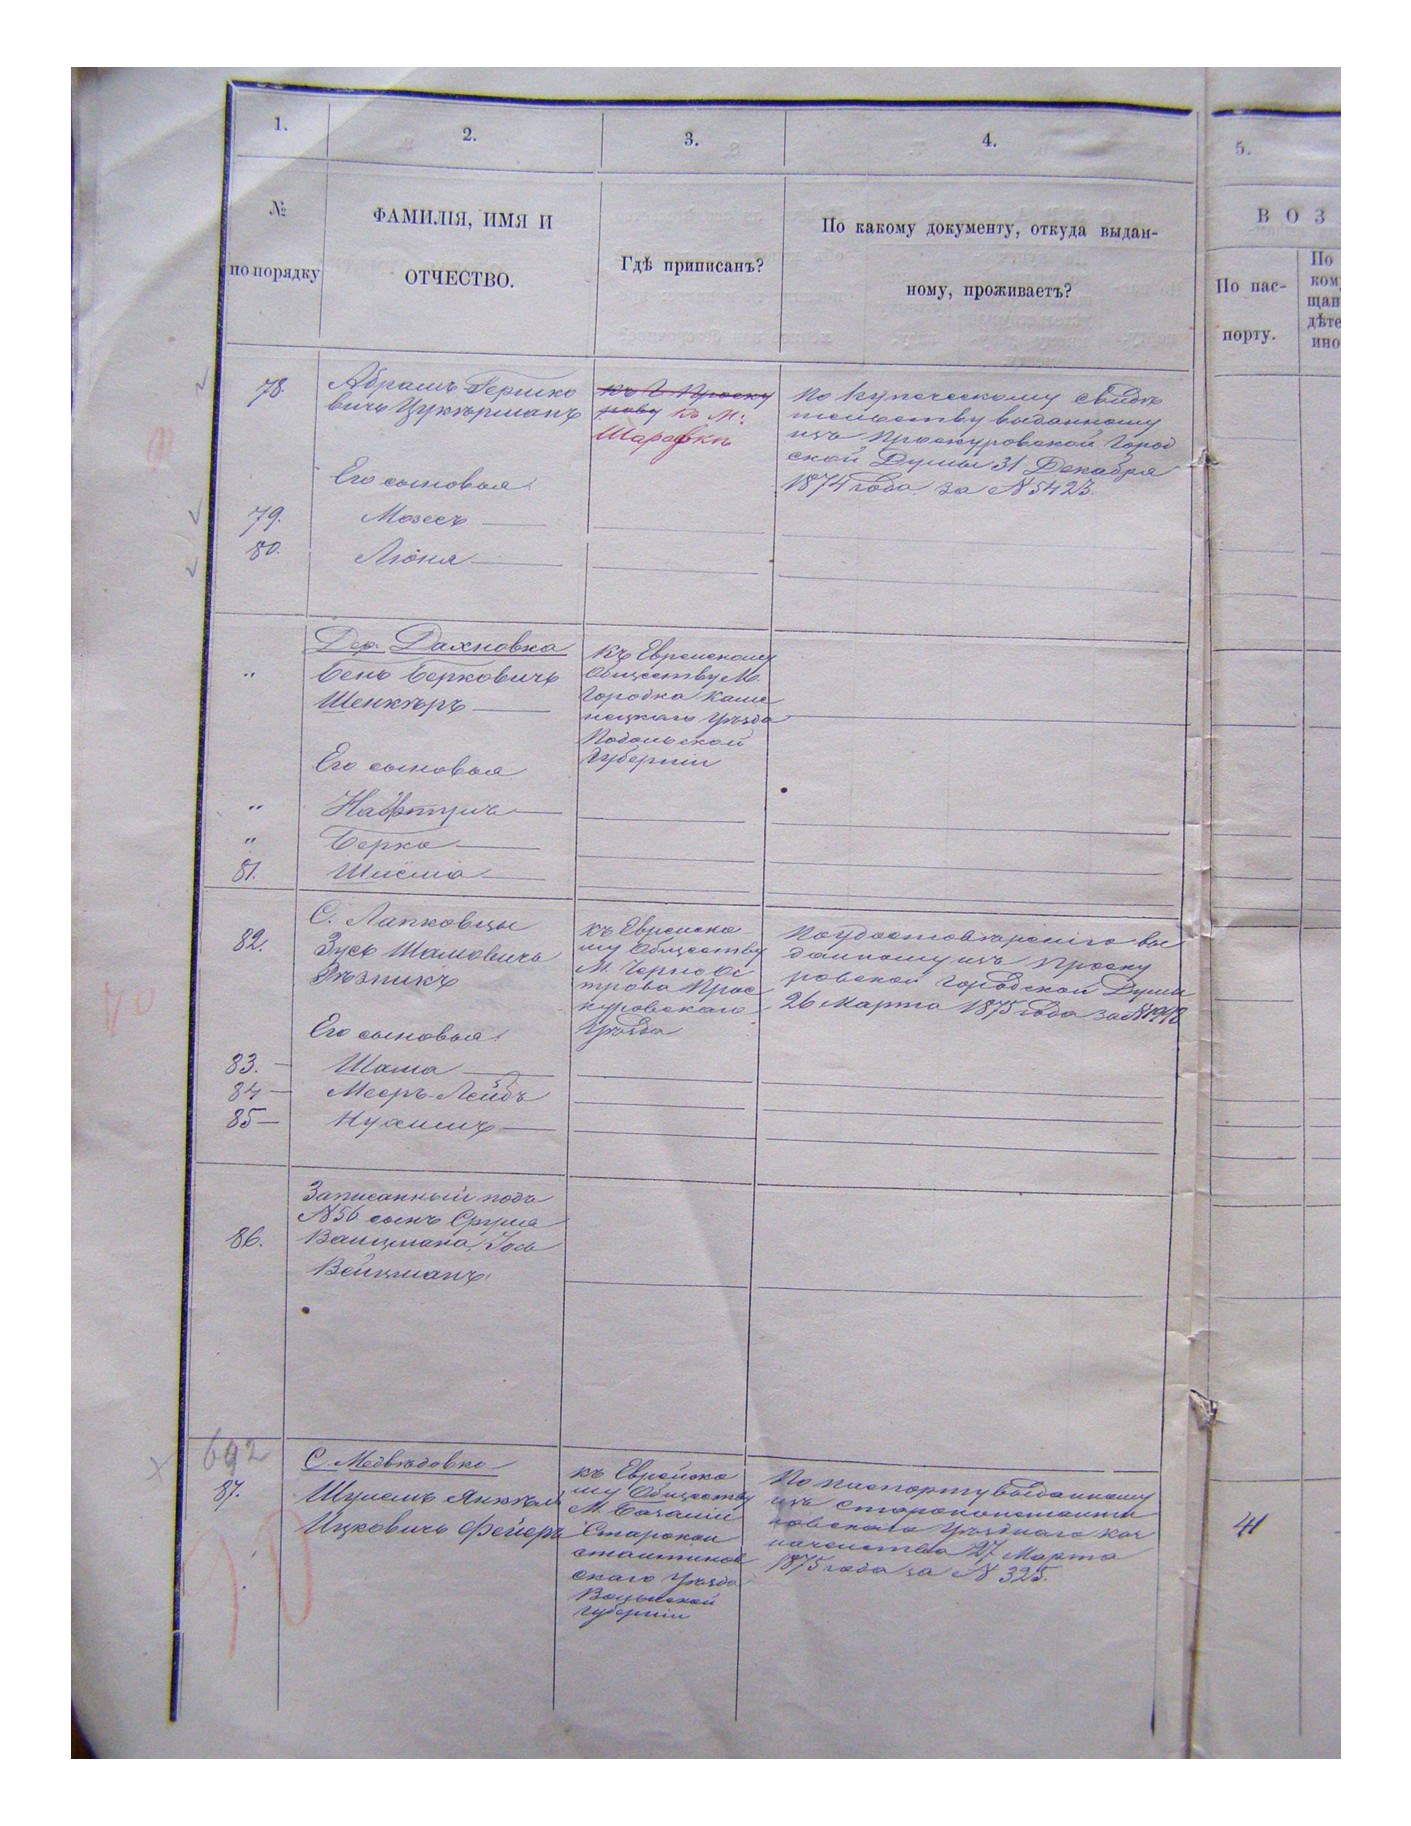 1.
2.
3.
4.
5.
№
по порядку
ФАМИЛІЯ, ИМЯ И
ОТЧЕСТВО.
Гдѣ приписанъ?
По какому документу, откуда выдан-
ному, проживаетъ?
В О З
По пас-
порту.
По
ком
щан
дѣте
ино
78.
Абрамъ Гершко
вичъ Цуккерманъ
къ Г. Проску
рову къ М:
Шаравкѣ
По Купеческому свидѣ
тельству выданному
изъ Проскуровской Город
ской Думы 31 Декабря
1874 года за № 5423.
Его сыновья:
79.
Мозесъ
80.
Люня
Дер. Дахновка
"
Бень Берковичъ
Шенкеръ
къ Еврейскому
Обществу М.
Городка Каме
нецкаго Уѣзда
Подольской
Губерніи
Его сыновья
"
Нафтула
"
Берко
81.
Шлёма
С. Лапковцы
82.
Зусь Шамовичъ
Рѣзникъ
къ Еврейско
му Обществу
М. Черноос
трова Прос
куровскаго
Уѣзда
По удостовѣренію вы
данному изъ Проску
ровской Городской Думы
26 Марта 1875 года за №
Его сыновья:
83.
Шама
84
Мееръ-Лейбъ
85
Нухимъ
86.
Записанный подъ
№ 56 сынъ Срула
Вайцмана, Іось
Вейцманъ.
692
С. Медвѣдовка
87.
Шулемъ Янкель
Ицковичъ Фейеръ
къ Еврейско
му Обществу
М. Базаліи
Старокон
стантинов
скаго Уѣзда
Волынской
Губерніи
По паспорту выданному
изъ Староконстанти
новскаго Уѣзднаго каз
начейства 27 Марта
1875 года за № 325.
41